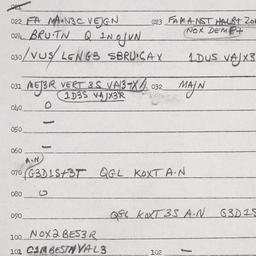 022 FA MA1N3C VEJGN 023 FAMA NST HALB+ ZO
024 BRU1TN Q 1NOJVN NOX DEME+
030 /VUS/ LENG3 SBRU1GAX 1DUS VAJX3
031 MEJ3R VERT 3S VA13 032 MAJN
1D3S VAJX3R
040 O
050 —
060 —
A·N
070 G3D1S+3T QGL KOXT A·N
080 O
090 QGL KOXT 3S A·N G3D1S
100 NOX2BES3R
101 C1MBESTNVAL3 102 —